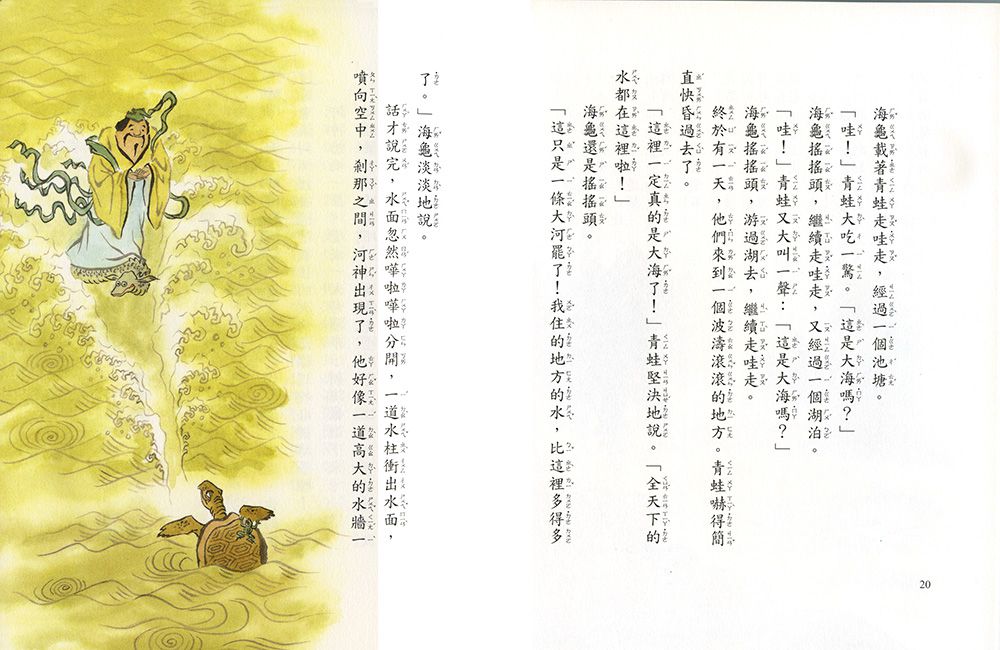 海龜載著青蛙走哇走，經過一個池塘。
「哇！」青蛙大吃一驚。「這是大海嗎？」
海龜搖搖頭，繼續走哇走，又經過一個湖泊。
「哇！」青蛙又大叫一聲：「這是大海嗎？」
海龜搖搖頭，游過湖去，繼續走哇走。
終於有一天，他們來到一個波濤滾滾的地方。青蛙嚇得簡
直快昏過去了。
「這裡一定真的是大海了！」青蛙堅決地說。「全天下的
水都在這裡啦！」
海龜還是搖搖頭。
「這只是一條大河罷了！我住的地方的水，比這裡多得多
了。」海龜淡淡地說。
話才說完，水面忽然嘩啦嘩啦分開，一道水柱衝出水面，
噴向空中，剎那之間，河神出現了，他好像一道高大的水牆一
20